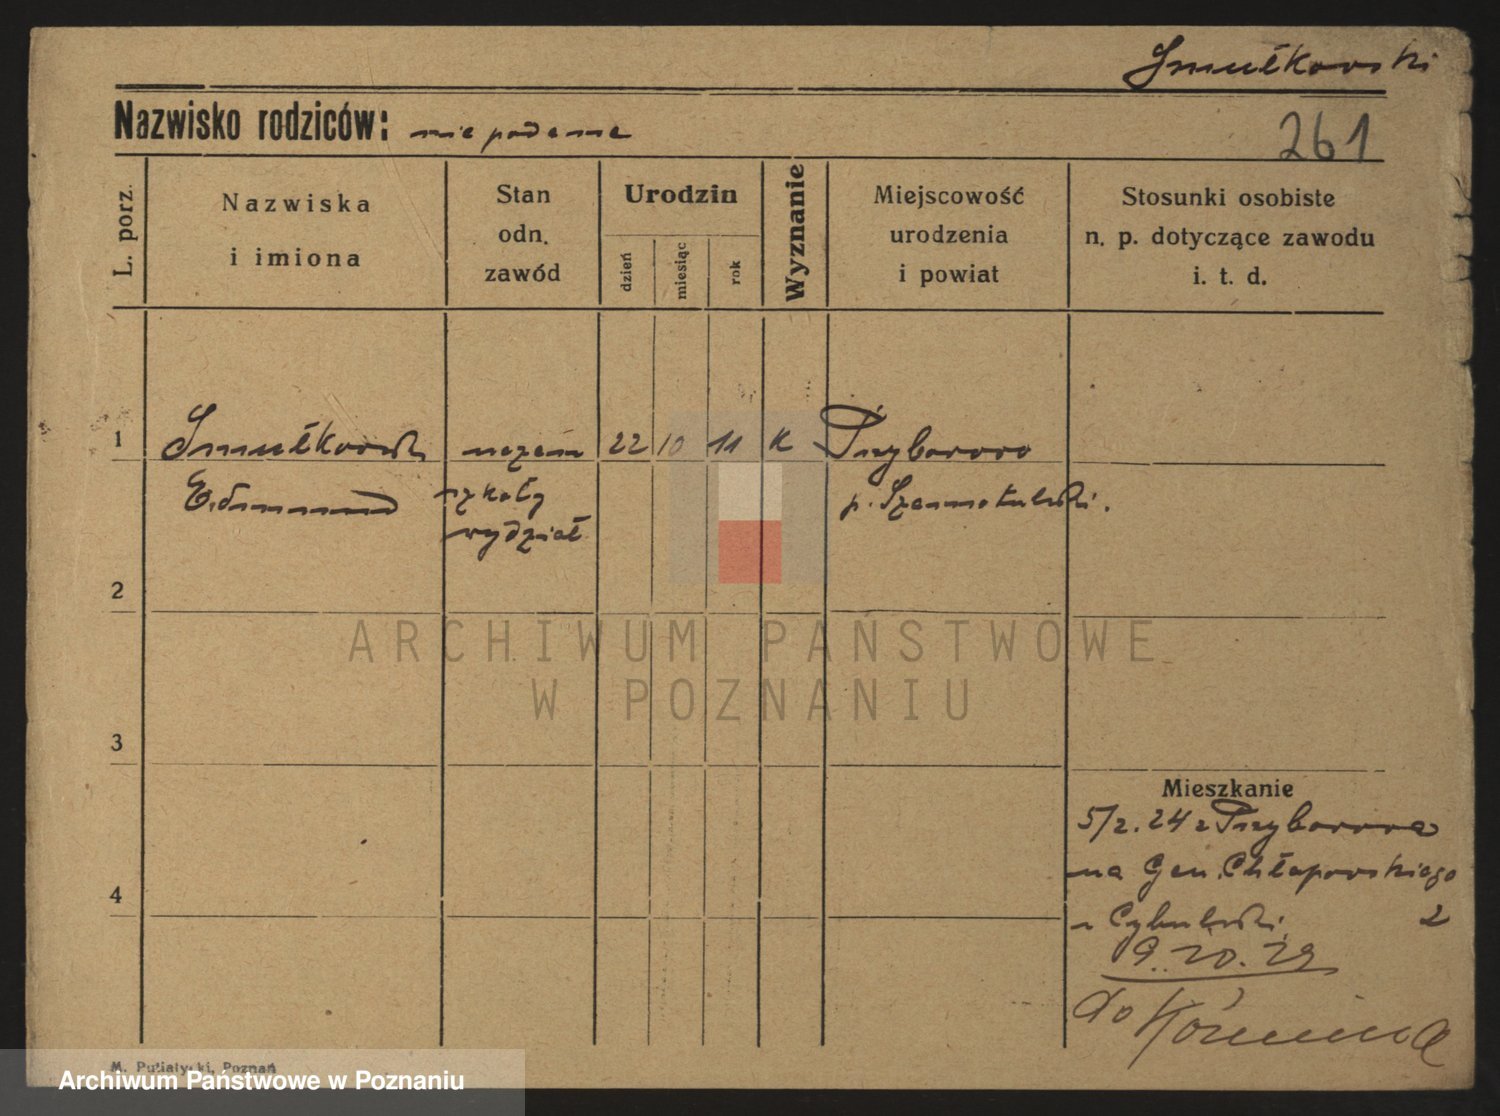 Smułkowski
Nazwisko rodziców: nie podane
261
L. porz.
Nazwiska
i imiona
Stan
odn.
zawód
Urodzin
dzień
miesiąc
rok
Wyznanie
Miejscowość
urodzenia
i powiat
Stosunki osobiste
n. p. dotyczące zawodu
i. t. d.
1 Smułkowski uczeń 22 10 11 K Przyborowo
Edmund szkoły p. Szamotulski.
wydział
2
3
4
ARCHIWUM PAŃSTWOWE
W POZNANIU
Mieszkanie
5/2. 24 z Przyborowa
na Gen. Chłapowskiego
u Cybulski 2
9. 10. 29
do Koźmina
M. Putiatycki, Poznań
Archiwum Państwowe w Poznaniu